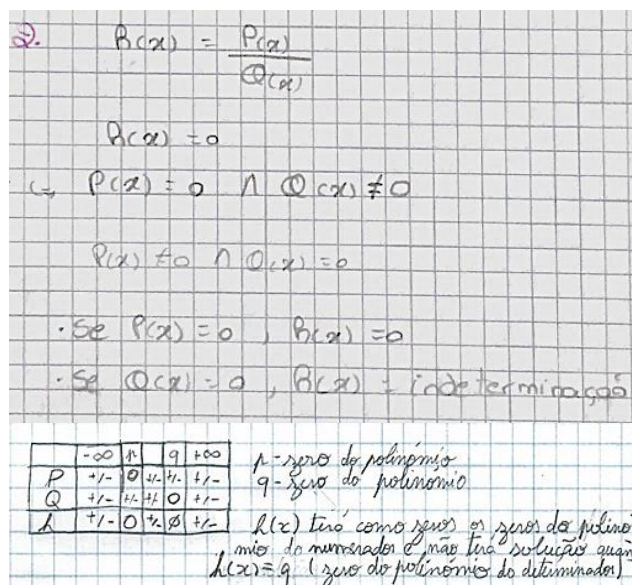 2. R(x) = P(x) / Q(x)
R(x) = 0
(=) P(x) = 0 ∧ Q(x) ≠ 0
P(x) ≠ 0 ∧ Q(x) = 0
· Se P(x) = 0, R(x) = 0
· Se Q(x) = 0, R(x) = indeterminação
-∞ p q +∞
P +/- 0 +/- +/- +/-
Q +/- +/- +/- 0 +/-
h +/- 0 +/- ∅ +/-
p - zero do polinómio
q - zero do polinomio
h(x) terá como zeros os zeros do polinó
mio do numerador e não terá solução quan
h(x) = q (zero do polinómio do determinador)